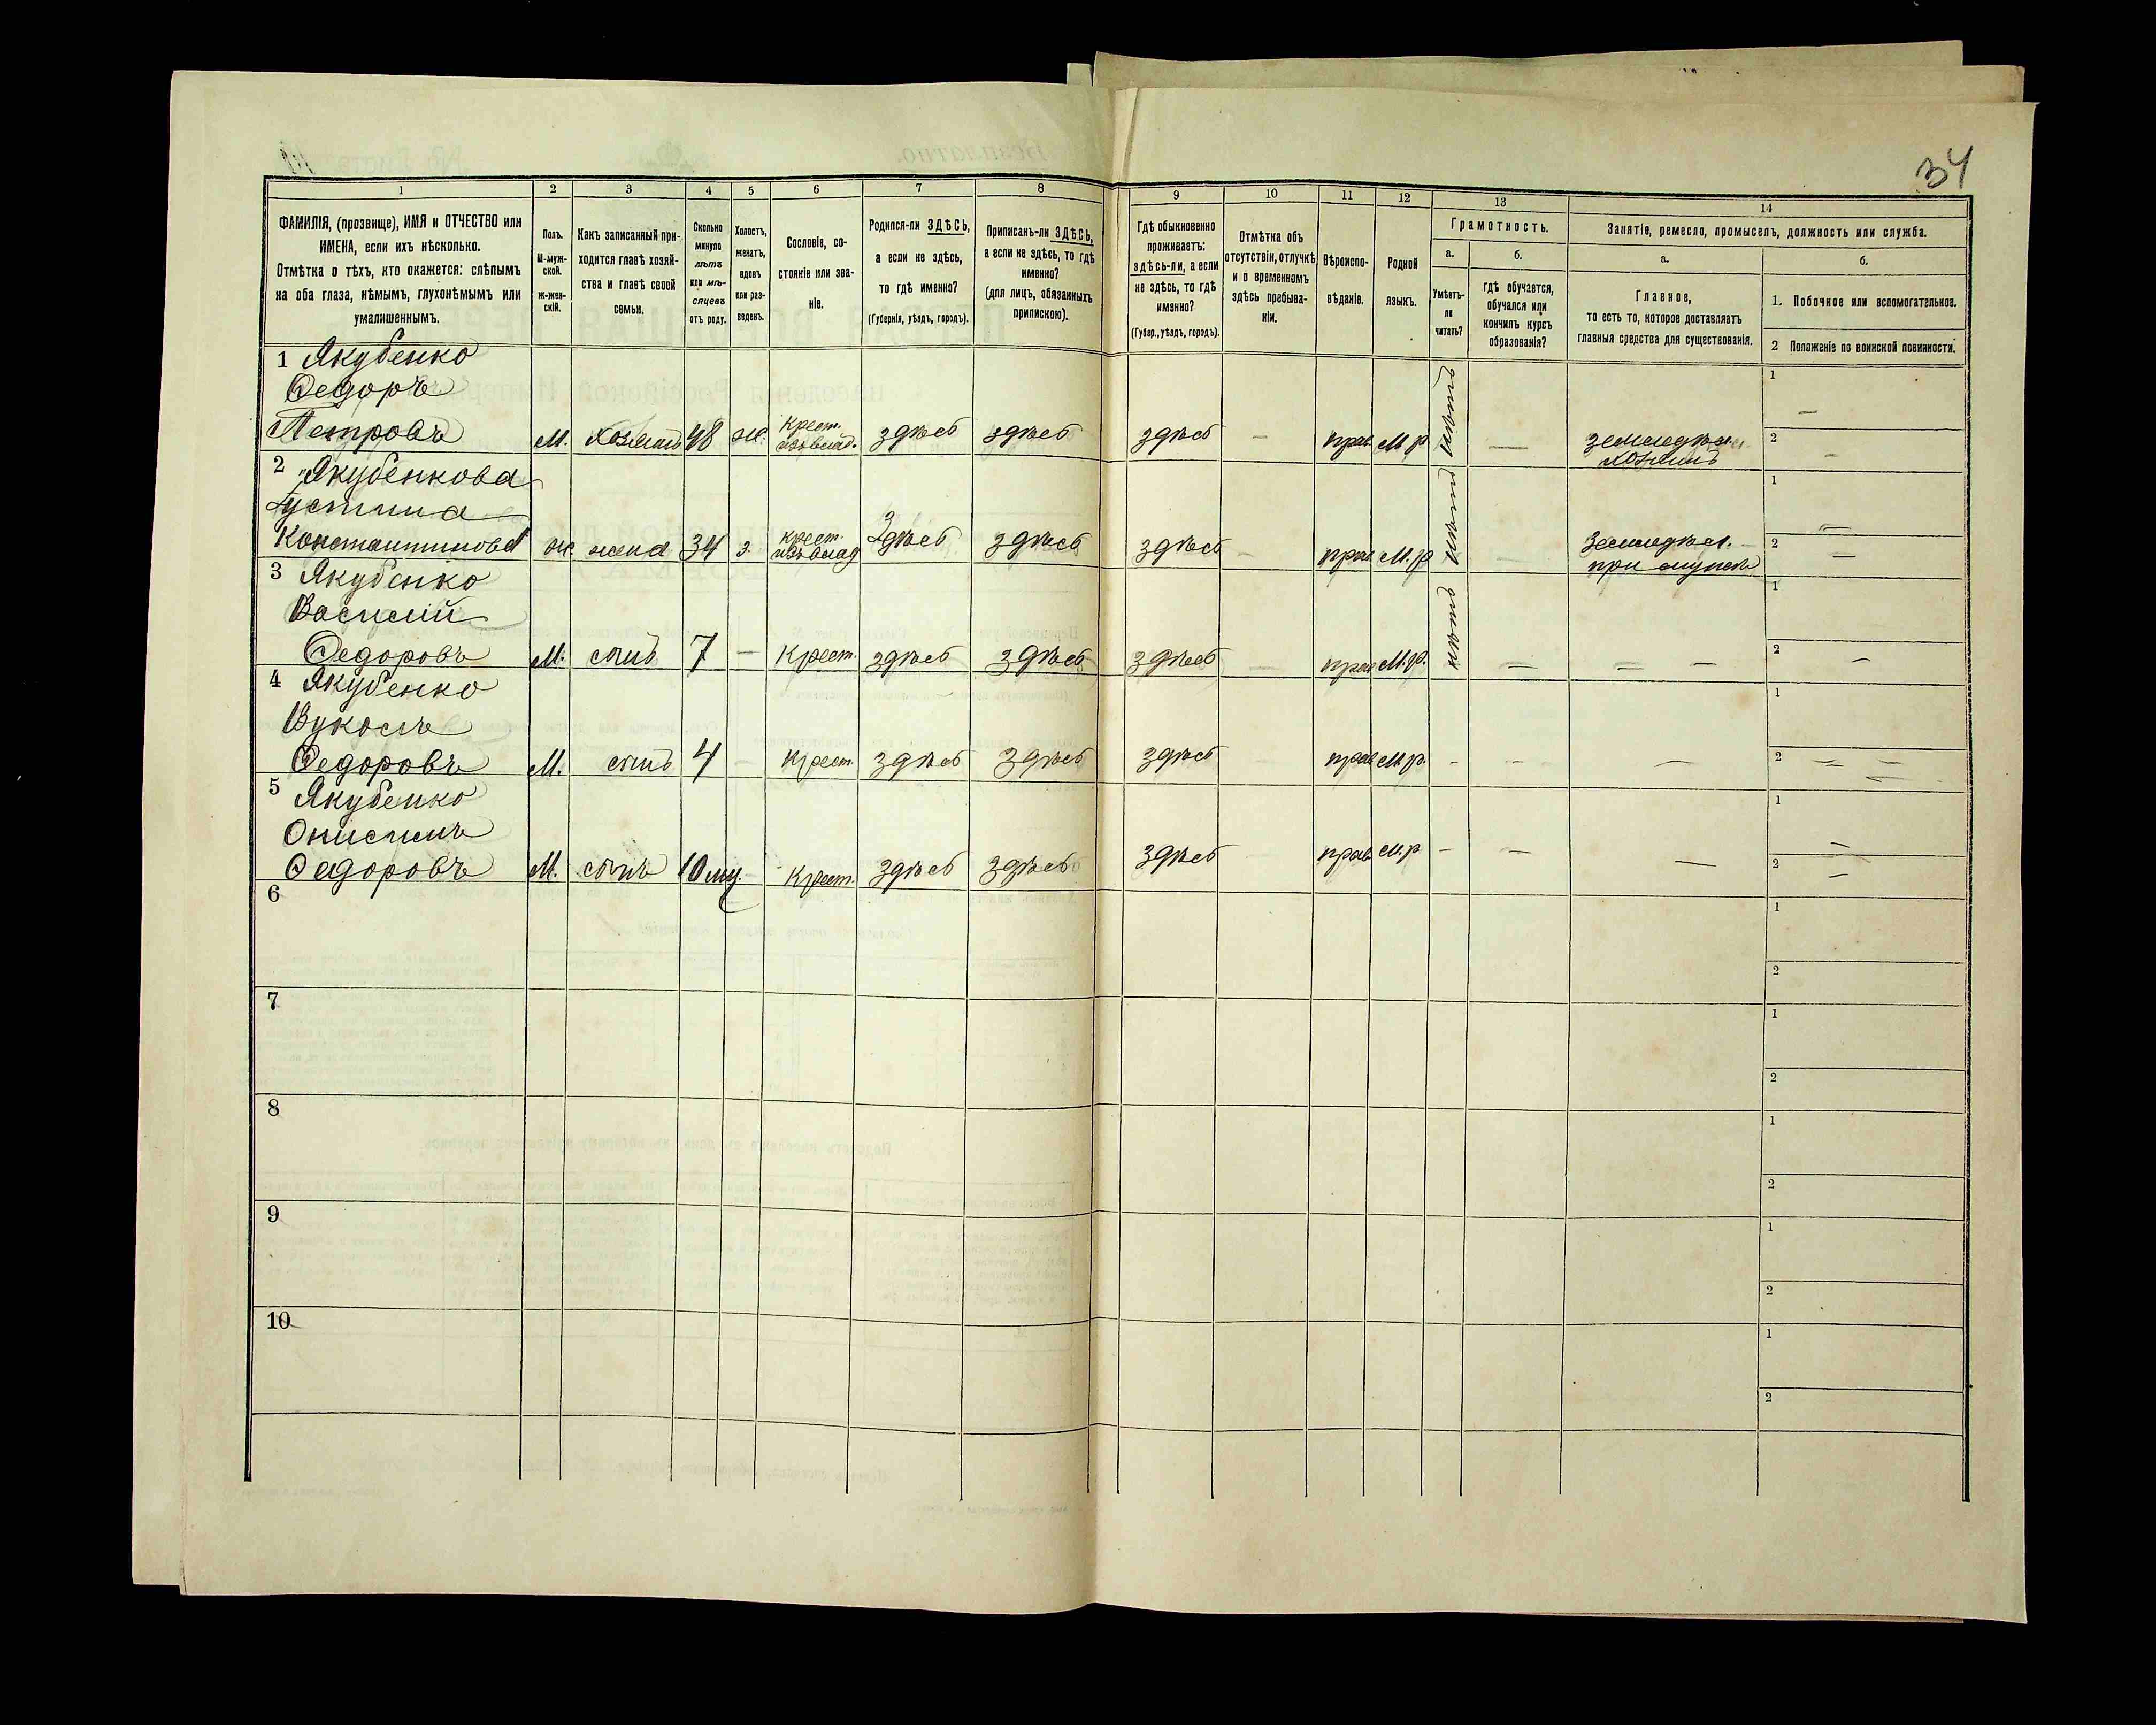 34
1
2
3
4
5
6
7
8
9
10
11
12
13
14
ФАМИЛІЯ, (прозвище), ИМЯ и ОТЧЕСТВО или
ИМЕНА, если ихъ нѣсколько.
Отмѣтка о тѣхъ, кто окажется: слѣпымъ
на оба глаза, нѣмымъ, глухонѣмымъ или
умалишеннымъ.
Полъ.
М-муж-
ской.
ж-жен-
скій.
Какъ записанный при-
ходится главѣ хозяй-
ства и главѣ своей
семьи.
Сколько
минуло
лѣтъ
или мѣ-
сяцевъ
отъ роду.
Холостъ,
женатъ,
вдовъ
или раз-
веденъ.
Сословіе, со-
стояніе или зва-
ніе.
Родился-ли ЗДѢСЬ,
а если не здѣсь,
то гдѣ именно?
(Губернія, уѣздъ, городъ).
Приписанъ-ли ЗДѢСЬ,
а если не здѣсь, то гдѣ
именно?
(для лицъ, обязанныхъ
припискою).
Гдѣ обыкновенно
проживаетъ:
здѣсь-ли, а если
не здѣсь, то гдѣ
именно?
(Губер., уѣздъ, городъ).
Отмѣтка объ
отсутствіи, отлучкѣ
и о временномъ
здѣсь пребыва-
ніи.
Вѣроиспо-
вѣданіе.
Родной
языкъ.
Грамотность.
а.
Умѣетъ-
ли
читать?
б.
гдѣ обучается,
обучался или
кончилъ курсъ
образованія?
Занятіе, ремесло, промыселъ, должность или служба.
а.
Главное,
то есть то, которое доставляетъ
главныя средства для существованія.
б.
1. Побочное или вспомогательное.
2 Положеніе по воинской повинности.
1 Якубенко
Федоръ
Петровъ
М. хозяинъ 48 ж. Крест. здѣсь здѣсь здѣсь — прав. М.р. нѣтъ — земледѣл.
хозяинъ
1 —
2 —
2 Якубенкова
Густина
Константинова
ж жена 34 з. крест. Здѣсь здѣсь здѣсь — прав. М.р. нѣтъ — Земледѣл.
при мужѣ
1 —
2 —
3 Якубенко
Василій
Федоровъ
М. сынъ 7 — Крест. здѣсь здѣсь здѣсь — прав М.р. нѣтъ — — — —
1
2 —
4 Якубенко
Вуколъ
Федоровъ
М. сынъ 4 — Крест. здѣсь здѣсь здѣсь прав М.р. - — —
1
2 —
5 Якубенко
Онисимъ
Федоровъ
М. сынъ 10 мц. Крест. здѣсь здѣсь здѣсь прав М.р - — —
1 —
2 —
6
1
2
7
1
2
8
1
2
9
1
2
10
1
2